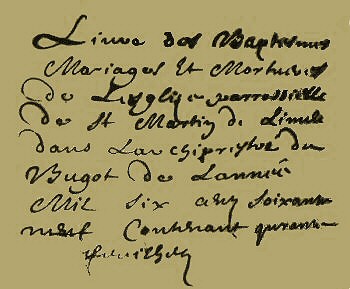 Liuve des Baptesmes
Mariages Et Mortueres
de Leyglize parroissielle
de St Martin de Limeul
dans Larchipreytré du
Bugot de Lannéé
Mil six cens soixante
neuf Contenant quarante
feuilhes